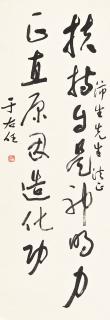 扶持自是神明力
沛生先生法正
正直原因造化功
于右任